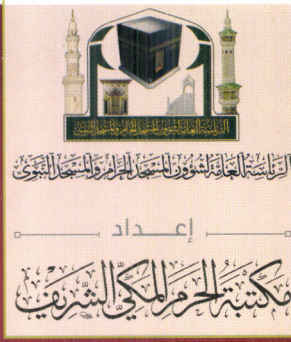 الرئاسة العامة لشؤون المسجد الحرام والمسجد النبوي
الرئاسة العامة لشؤون المسجد الحرام والمسجد النبوي
إعـداد
مكتبة الحرم المكي الشريف